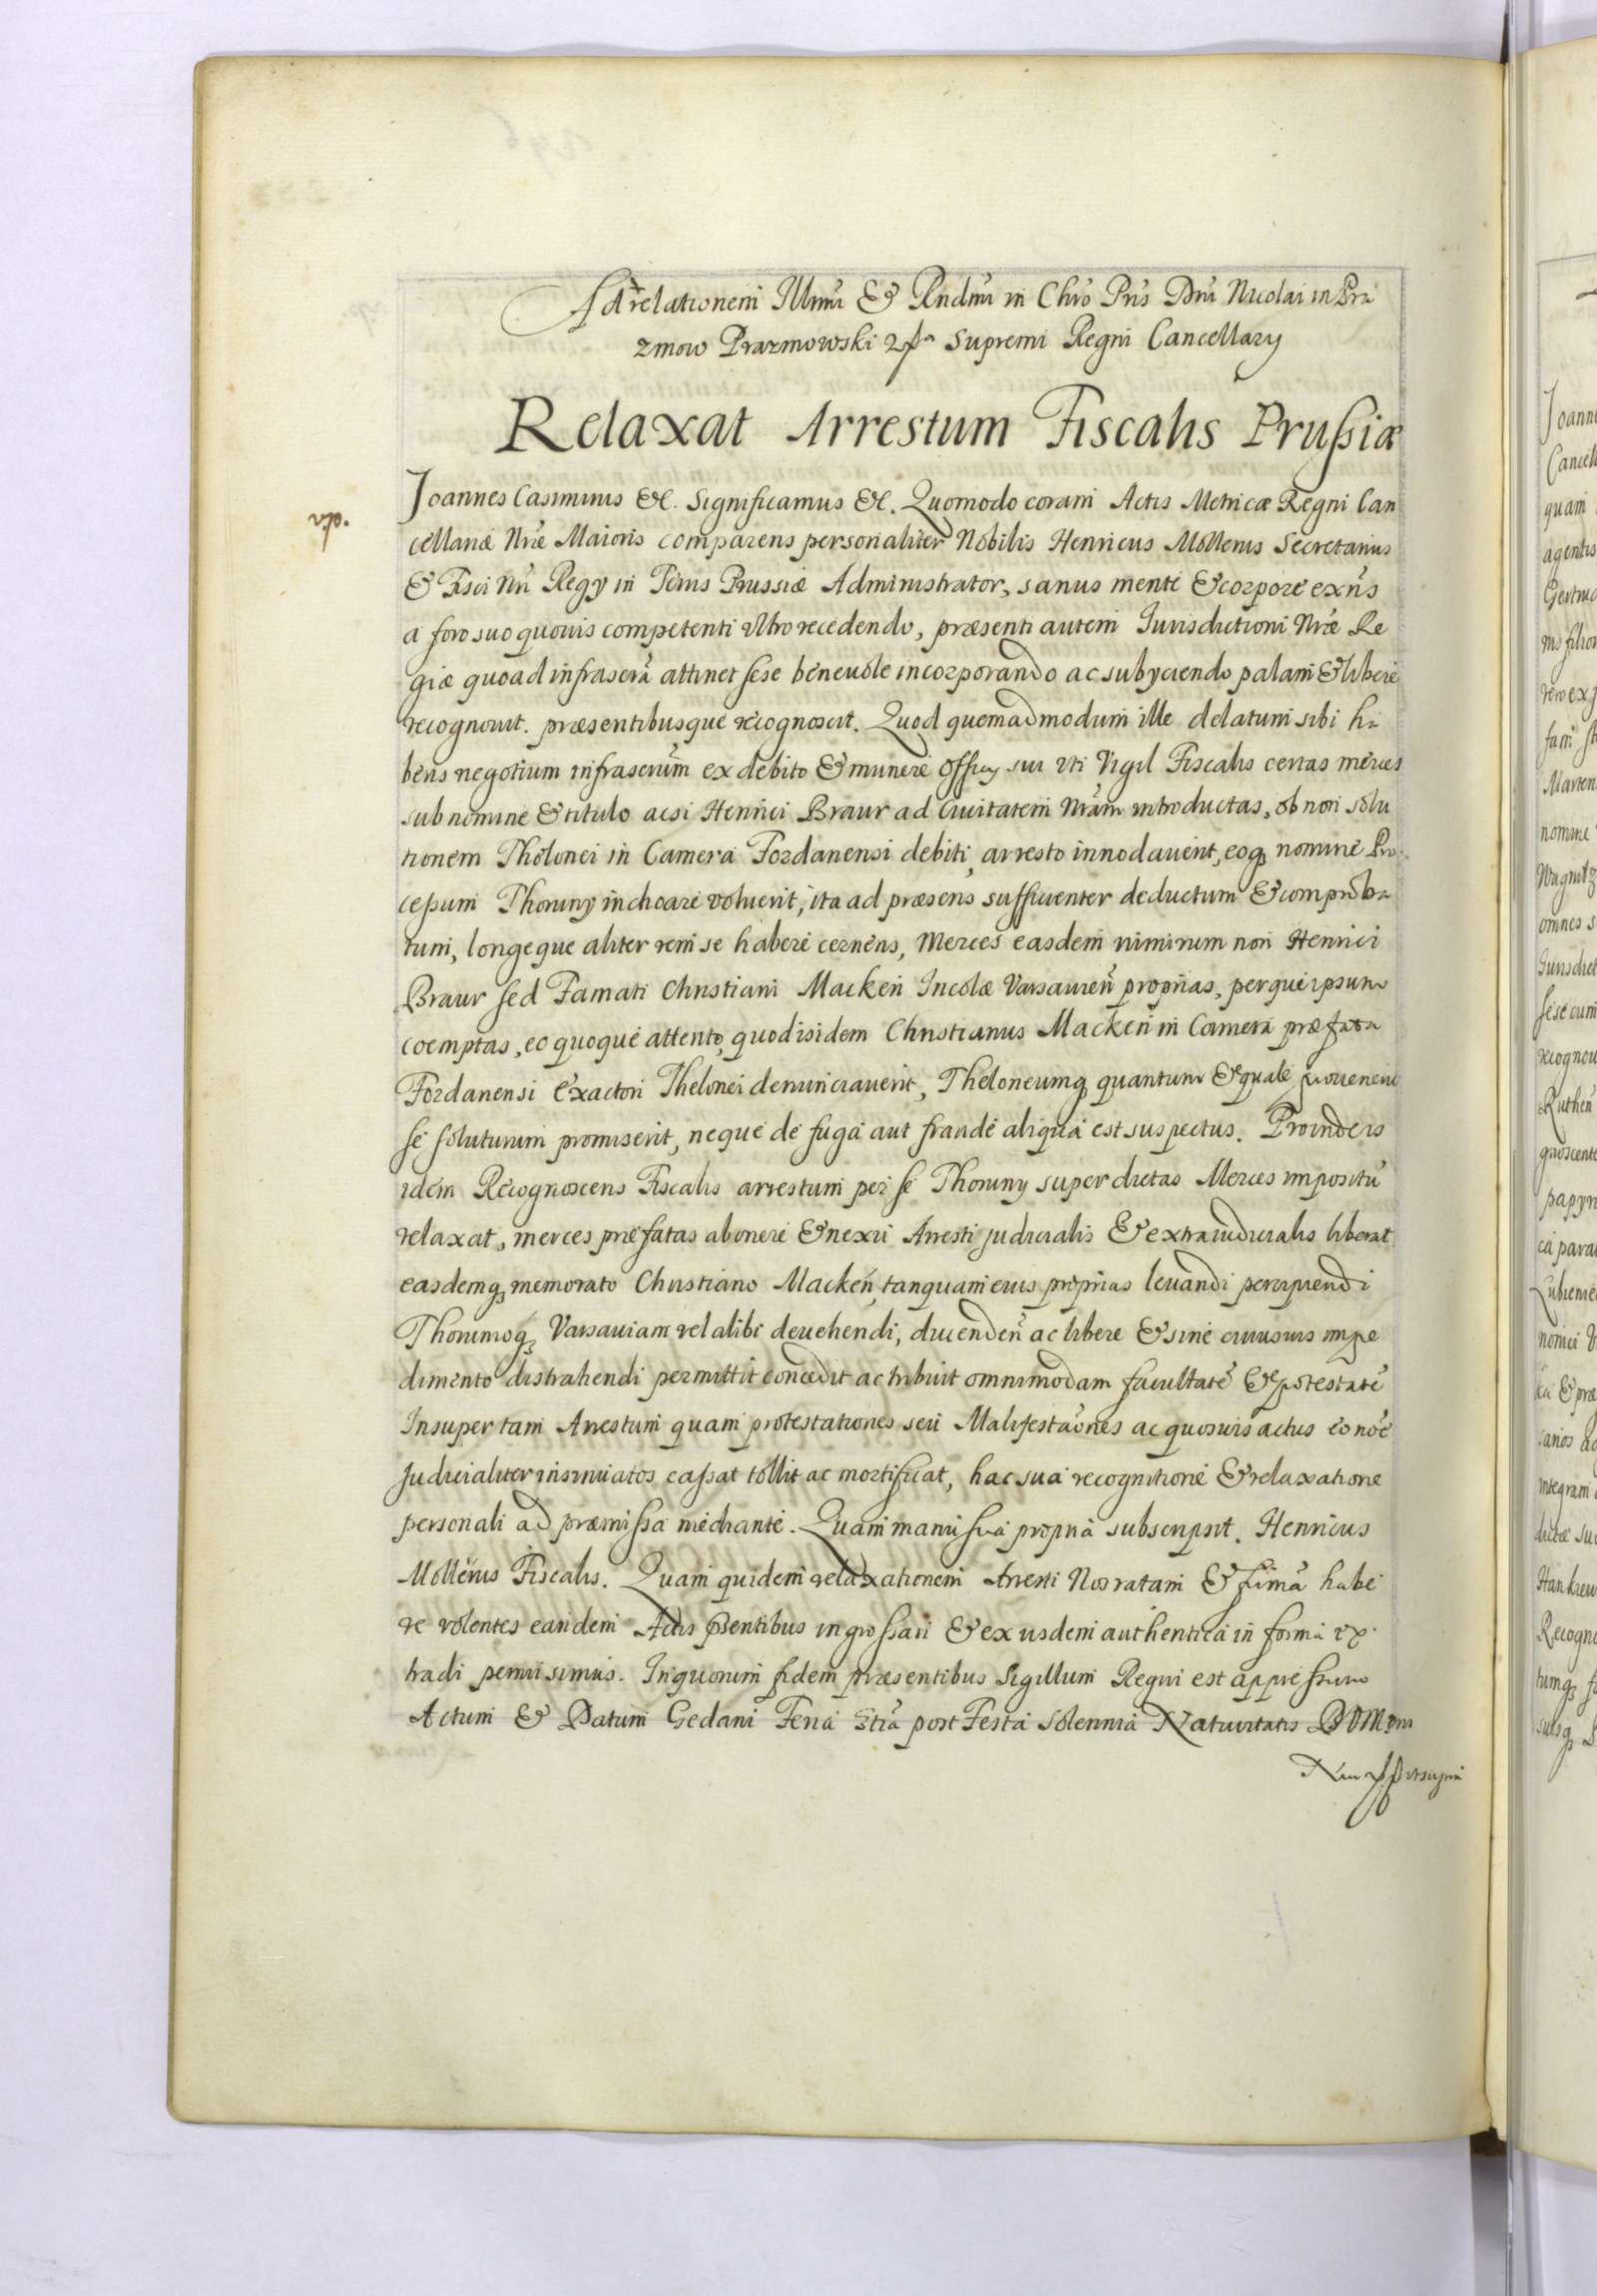 Ad relationem Illmi & Rndmi in Chro Pris Dni Nicolai in Pra
zmow Prazmowski Supremi Regni Cancellarij
Relaxat Arrestum Fiscalis Prussiæ
Joannes Casimirus &c. Significamus &c. Quomodo coram Actis Metricæ Regni Can
cellariæ Nræ Maioris comparens personaliter Nobilis Henricus Mollerus Secretarius
& Fisci Nri Regij in Terris Prussiæ Administrator, sanus mente & corpore exns
a foro suo quouis competenti vltro recedendo, præsenti autem Iurisdictioni Nræ Re
giæ quoad infrascra attinet sese beneuole incorporando ac subyciendo palam & libere
recognouit. præsentibusque recognoscit. Quod quemadmodum ille delatum sibi ha
bens negotium infrascrum ex debito & munere officij sui vti Vigil Fiscalis certas merces
sub nomine & titulo acsi Henrici Braur ad Ciuitatem Nram introductas, ob non solu
tionem Thelonei in Camera Fordanensi debiti, arresto innodauerit, eoq nomine Pro
cessum Thoruny inchoare voluerit, ita ad præsens sufficienter deductum & comproba
tum, longeque aliter rem se habere cernens, Merces easdem nimirum non Henrici
Braur sed Famati Christiani Macken Incolæ Varsauien proprias, perque ipsum
coemptas, eo quoque attento, quod isidem Christianus Macken in Camera præfata
Fordanensi Exactori Thelonei denunciauerit, Theloneumq quantum & quale prouenerit
se soluturum promiserit, neque de fuga aut fraude aliqua est suspectus. Proinde is
idem Recognoscens Fiscalis arrestum per se Thoruny super dictas Merces impositu
relaxat, merces præfatas ab onere & nexu Arresti judicialis & extraiudicialis liberat
easdemq memorato Christiano Macken, tanquam eius proprias leuandi percipiendi
Thorunioq Varsauiam vel alibi deuehendi, diuenden ac libere & sine cuiusuis impe
dimento distrahendi permittit concedit ac tribuit omnimodam facultate & potestate
Insuper tam Arrestum quam protestationes seu Malifestaones ac quosuis actus eo noe
judicialiter insinuatos cassat tollit ac mortificat, hac sua recognitione & relaxatione
personali ad præmissa mediante. Quam manu sua propria subscripsit. Henricus
Mollerus Fiscalis. Quam quidem relaxationem Arresti Nos ratam & firma habe
re volentes eandem Actis psentibus ingrossari & ex ijsdem authentica in forma ex
tradi permisimus. In quorum fidem præsentibus Sigillum Regni est appressum
Actum & Datum Gedani Feria 3tia post Festa solennia Natiuitatis DOMini
vt supra